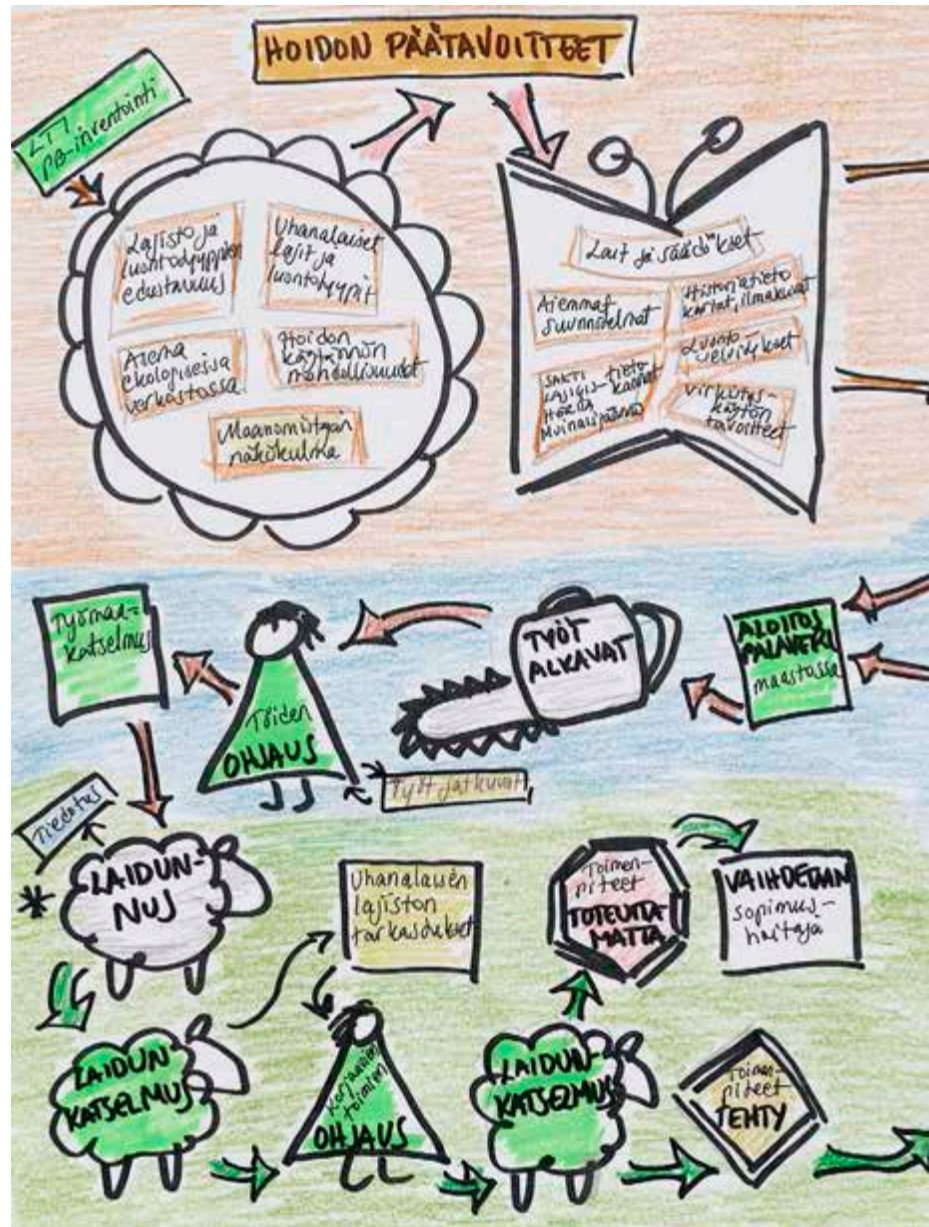 HOIDON PÄÄTAVOITTEET
LTI
PB-inventointi
Lajisto ja
luontotyyppien
edustavuus
Uhanalaiset
lajit ja
luontotyypit
Asema
ekologisessa
verkostossa
Hoidon
käytännön
mahdollisuudet
Maanomistajan
näkökulma
Lait ja säädökset
Aiemmat
suunnitelmat
Historiatieto
kartat, ilmakuvat
SAKTI
LAJIGIS
HERTTA
Muinaisjäännö
tieto-
kannat
Luonto-
selvitykset
Virkistys-
käytön
tavoitteet
Työmaa-
katselmus
Töiden
OHJAUS
TYÖT
ALKAVAT
ALOITUS
PALAVERI
maastossa
Työt jatkuvat
Tiedotus
*
LAIDUN-
NUS
Uhanalaisen
lajiston
tarkastukset
Toimen-
piteet
TOTEUTTA-
MATTA
VAIHDETAAN
sopimus-
hoitaja
LAIDUN-
KATSELMUS
Korjaavien
toimien
OHJAUS
LAIDUN-
KATSELMUS
Toimen-
piteet
TEHTY